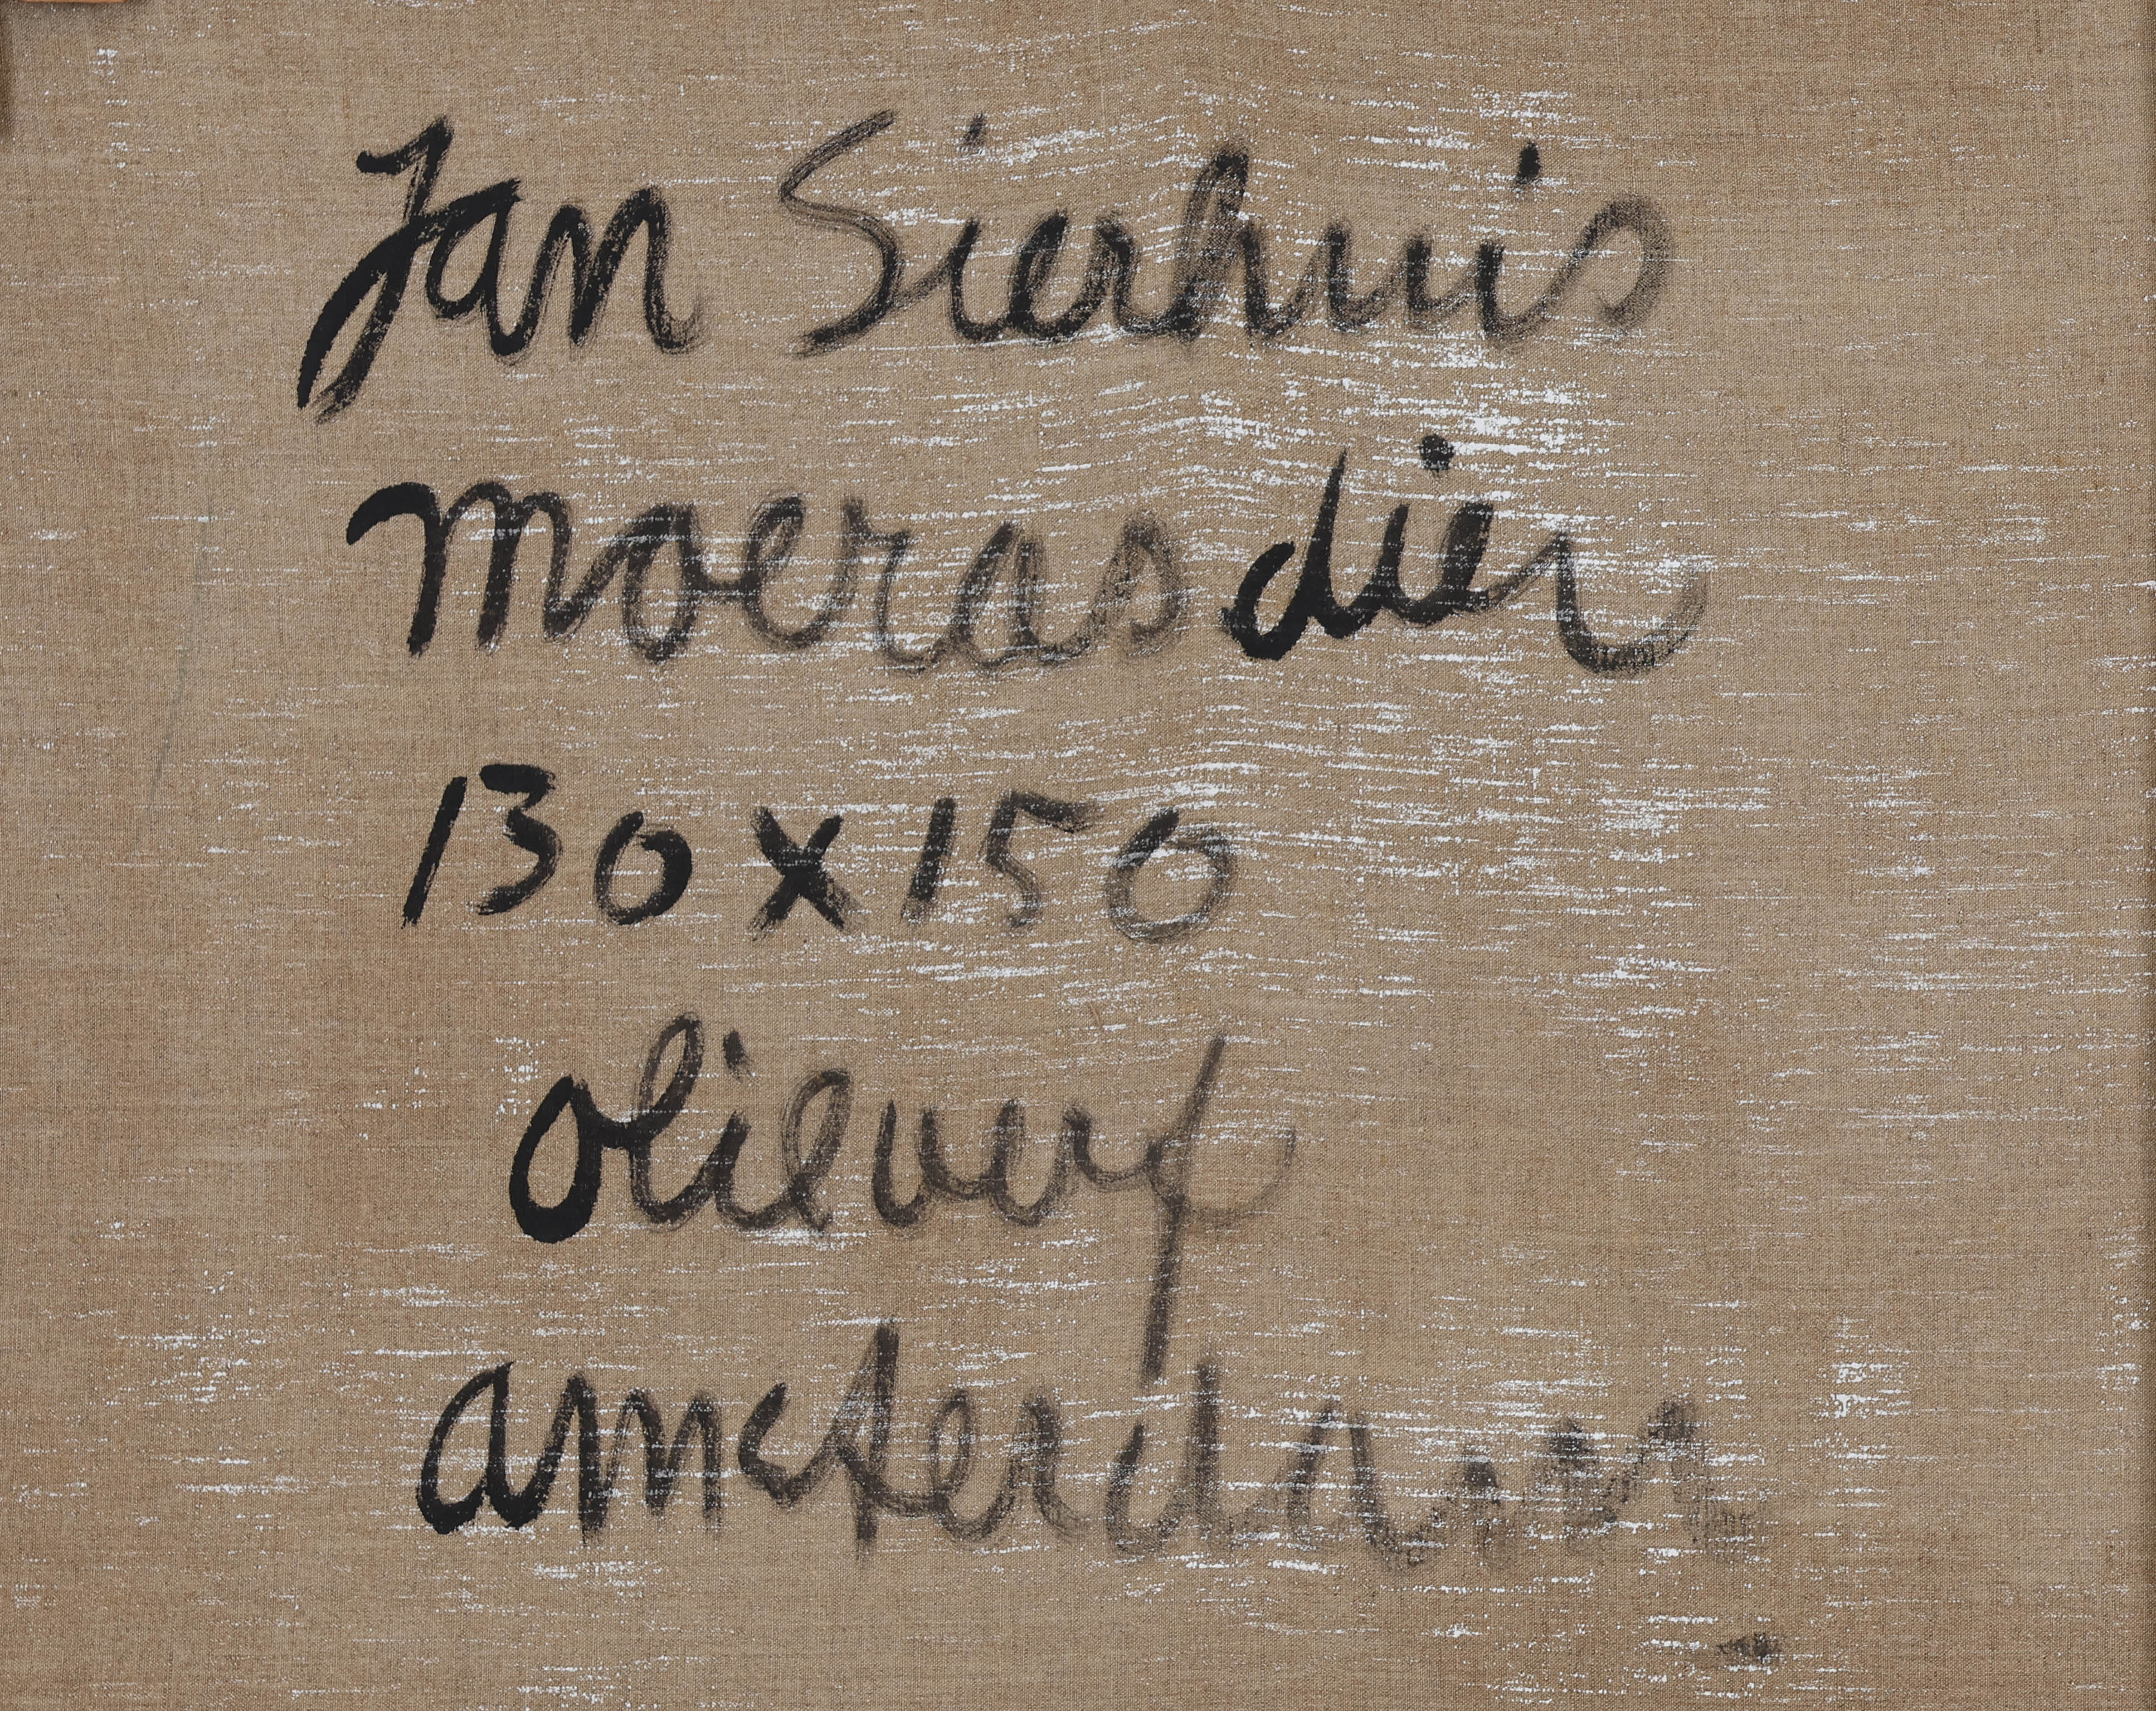 Jan Sierhuis
moerasdier
130 x 150
olieverf
amsterdam